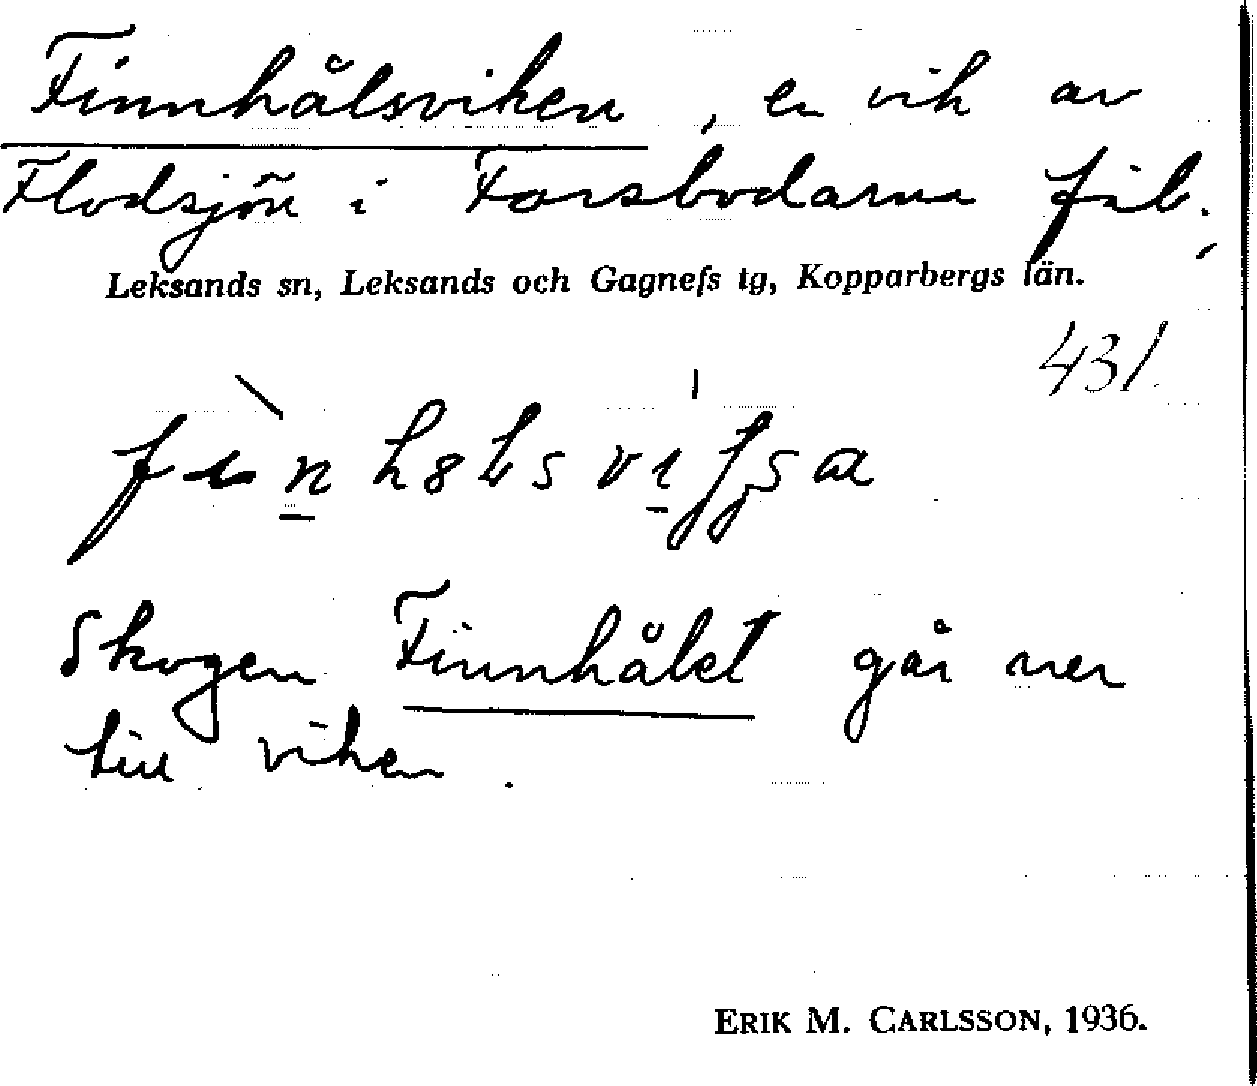 Finnhålsviken, en vik av
Flodsjön i Forsbodarna fäb.,
Leksands sn, Leksands och Gagnefs tg, Kopparbergs län.
431
Skogen Finnhålet går ner
till viken.
ERIK M. CARLSSON, 1936.